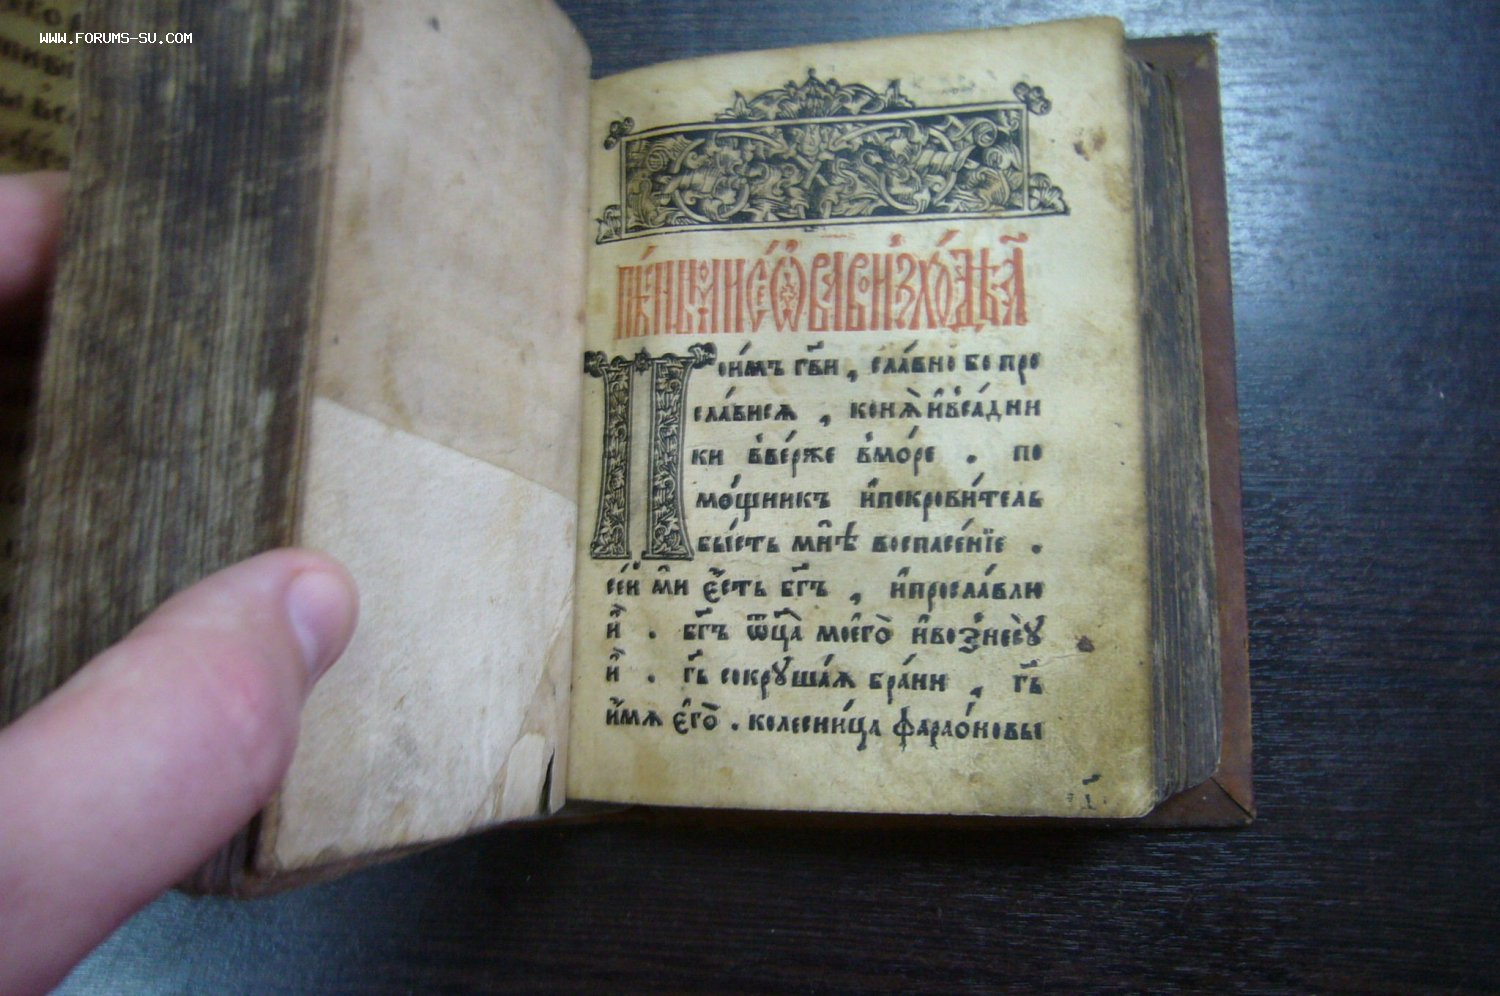 WWW.FORUMS-SU.COM
Пои́мъ гв҃и, сла́вно бо про
сла́вися, коня̀ и҆вса́дни
ки вве́рже вмо́ре. по
мо́щникъ и҆покрови́тель
бы́сть мнѣ̀ воспасе́нїе.
се́й ми є҆́сть бг҃ъ, и҆просла́влю
и҆̀. бг҃ъ ѿц҃а̀ моегѡ̀ и҆вознесꙋ̀
и҆̀. гь҃ сокрꙋша́ѧ бра́ни, гь҃
и҆́мѧ є҆гѡ̀. колесни́ца фараѡ́новы